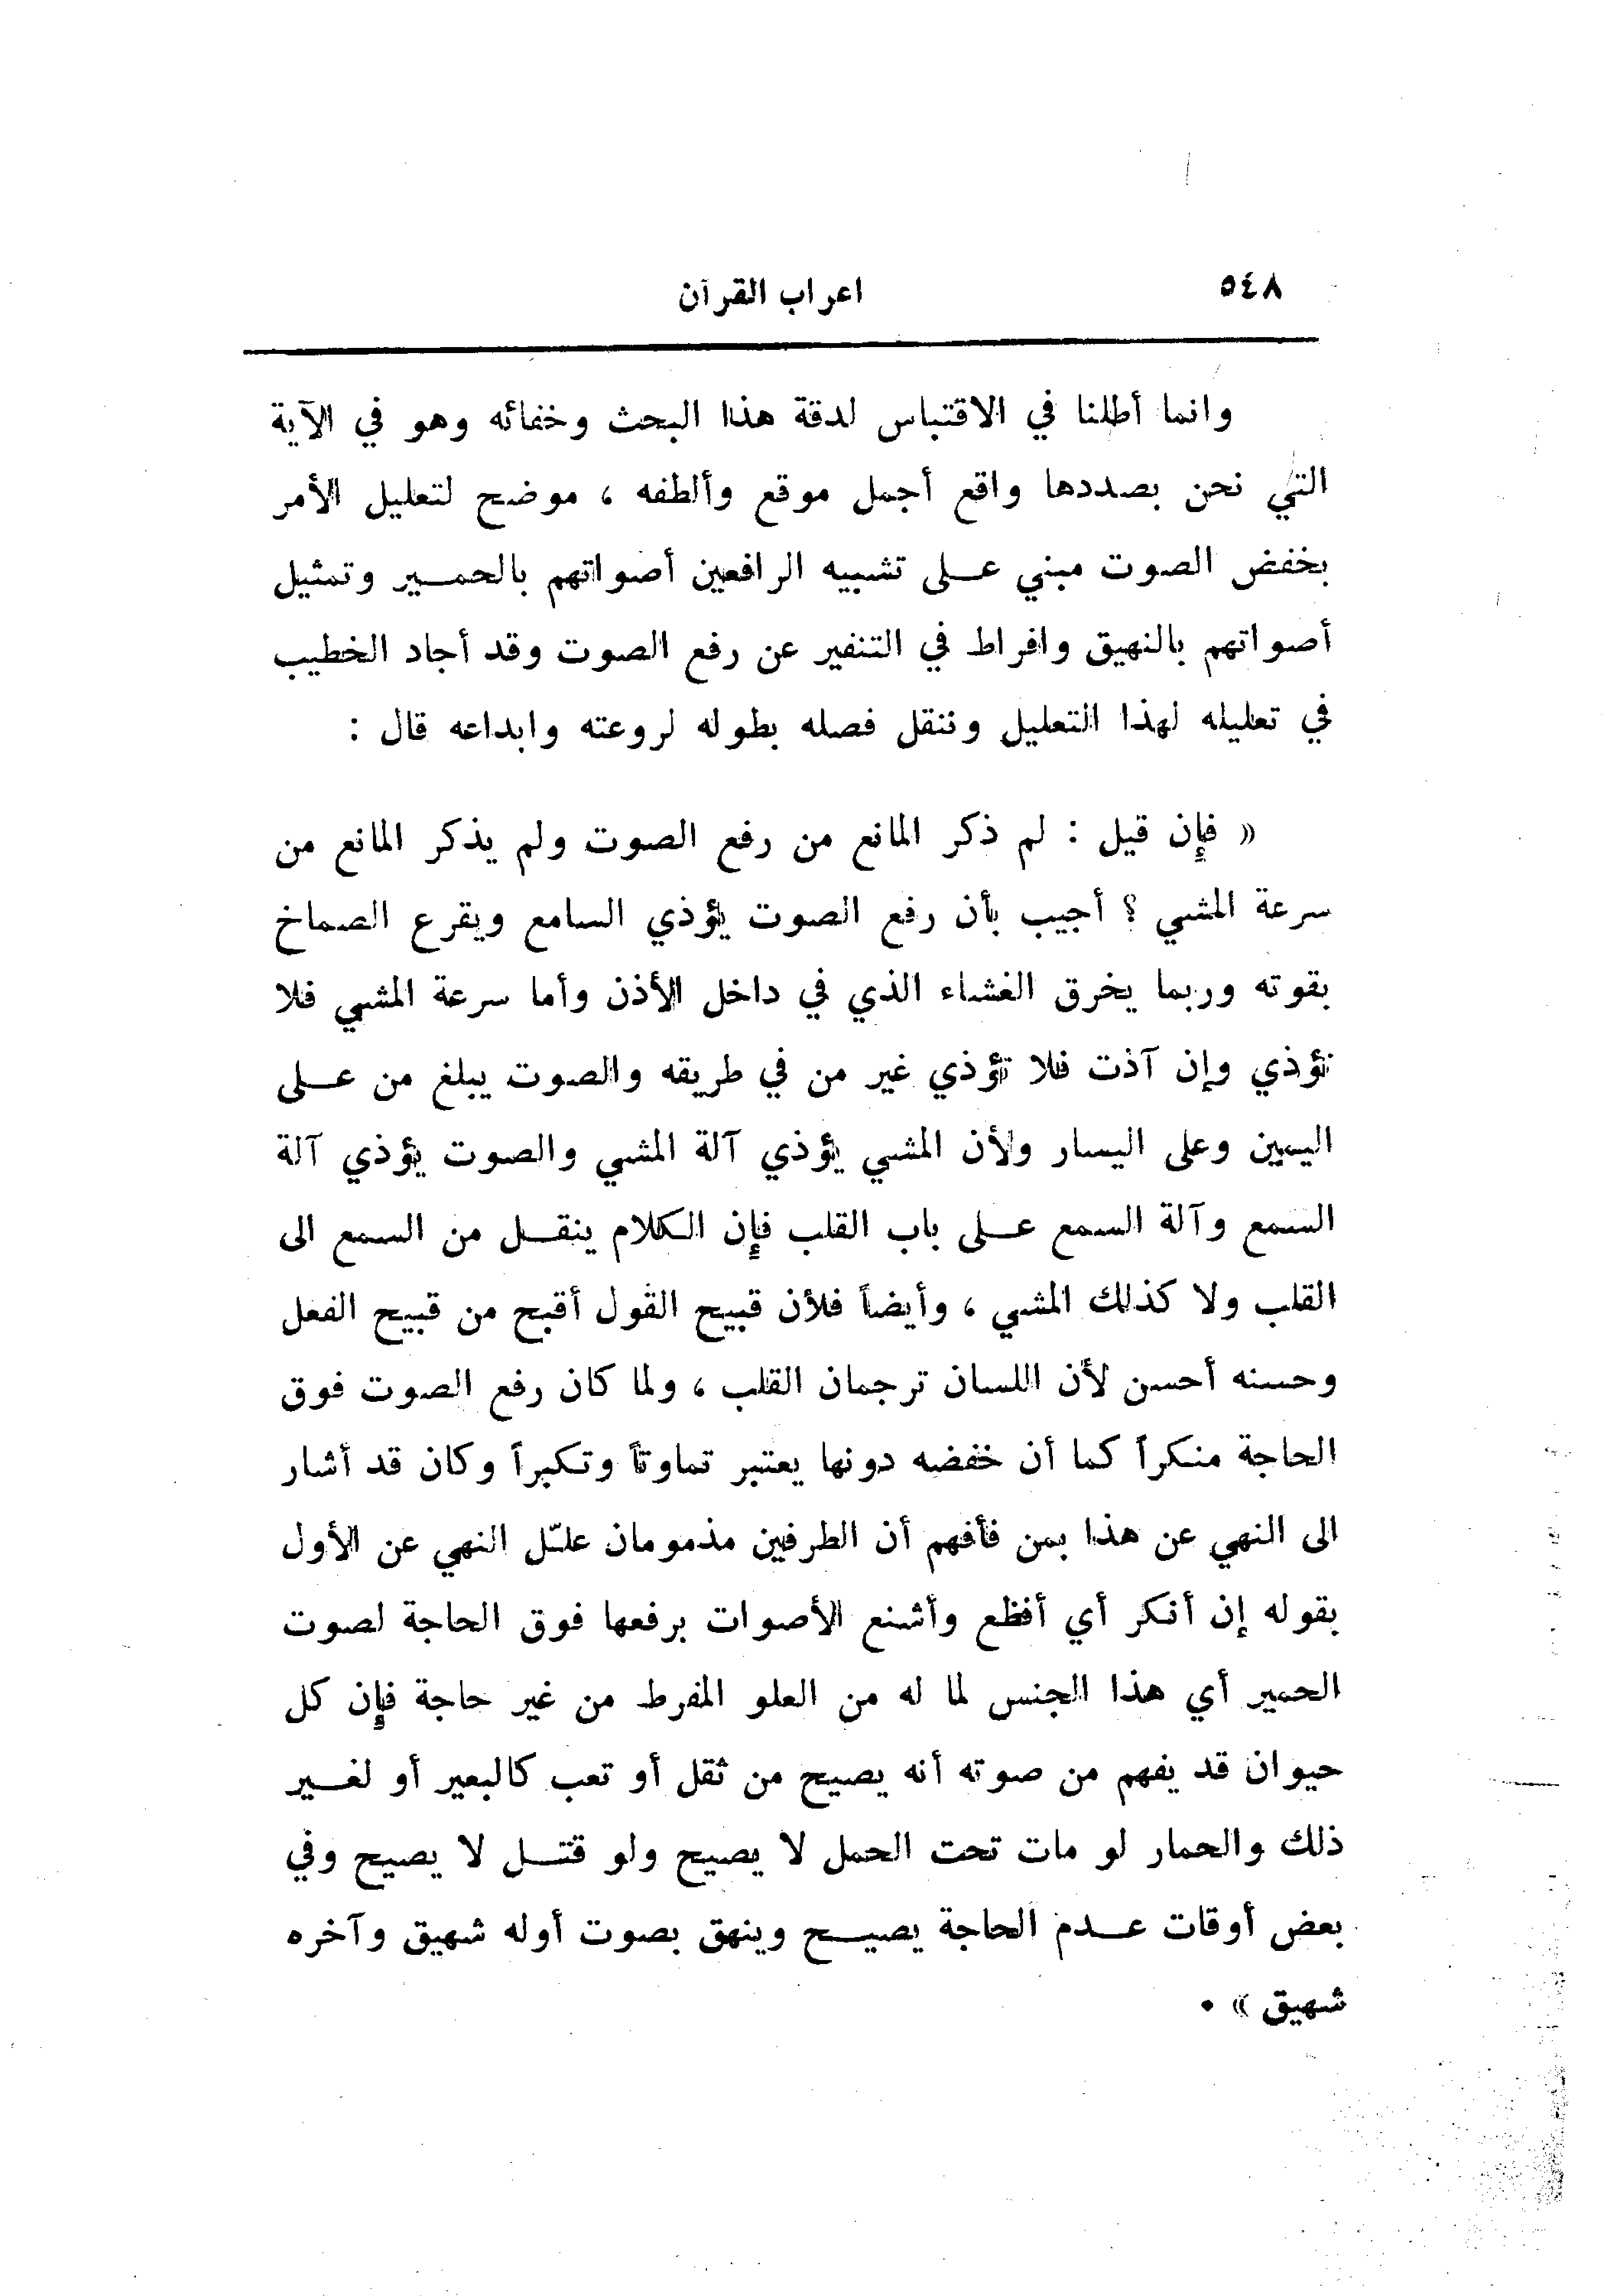 ٥٤٨
اعراب القرآن
وانما أطلنا في الاقتباس لدقة هذا البحث وخفائه وهو في الآية
التي نحن بصددها واقع أجمل موقع وألطفه ، موضح لتعليل الأمر
بخفض الصوت مبني على تشبيه الرافعين أصواتهم بالحمير وتمثيل
أصواتهم بالنهيق وافراط في التنفير عن رفع الصوت وقد أجاد الخطيب
في تعليله لهذا التعليل وننقل فصله بطوله لروعته وابداعه قال :
« فإن قيل : لم ذكر المانع من رفع الصوت ولم يذكر المانع من
سرعة المشي ؟ أجيب بأن رفع الصوت يؤذي السامع ويقرع الصماخ
بقوته وربما يخرق الغشاء الذي في داخل الأذن وأما سرعة المشي فلا
تؤذي وإن آذت فلا تؤذي غير من في طريقه والصوت يبلغ من على
اليمين وعلى اليسار ولأن المشي يؤذي آلة المشي والصوت يؤذي آلة
السمع وآلة السمع على باب القلب فإن الكلام ينقل من السمع الى
القلب ولا كذلك المشي ، وأيضاً فلأن قبيح القول أقبح من قبيح الفعل
وحسنه أحسن لأن اللسان ترجمان القلب ، ولما كان رفع الصوت فوق
الحاجة منكراً كما أن خفضه دونها يعتبر تماوتاً وتكبراً وكان قد أشار
الى النهي عن هذا بمن فأفهم أن الطرفين مذمومان علّل النهي عن الأول
بقوله إن أنكر أي أفظع وأشنع الأصوات برفعها فوق الحاجة لصوت
الحمير أي هذا الجنس لما له من العلو المفرط من غير حاجة فإن كل
حيوان قد يفهم من صوته أنه يصيح من ثقل أو تعب كالبعير أو لغير
ذلك والحمار لو مات تحت الحمل لا يصيح ولو قتل لا يصيح وفي
بعض أوقات عدم الحاجة يصيح وينهق بصوت أوله شهيق وآخره
شهيق » .